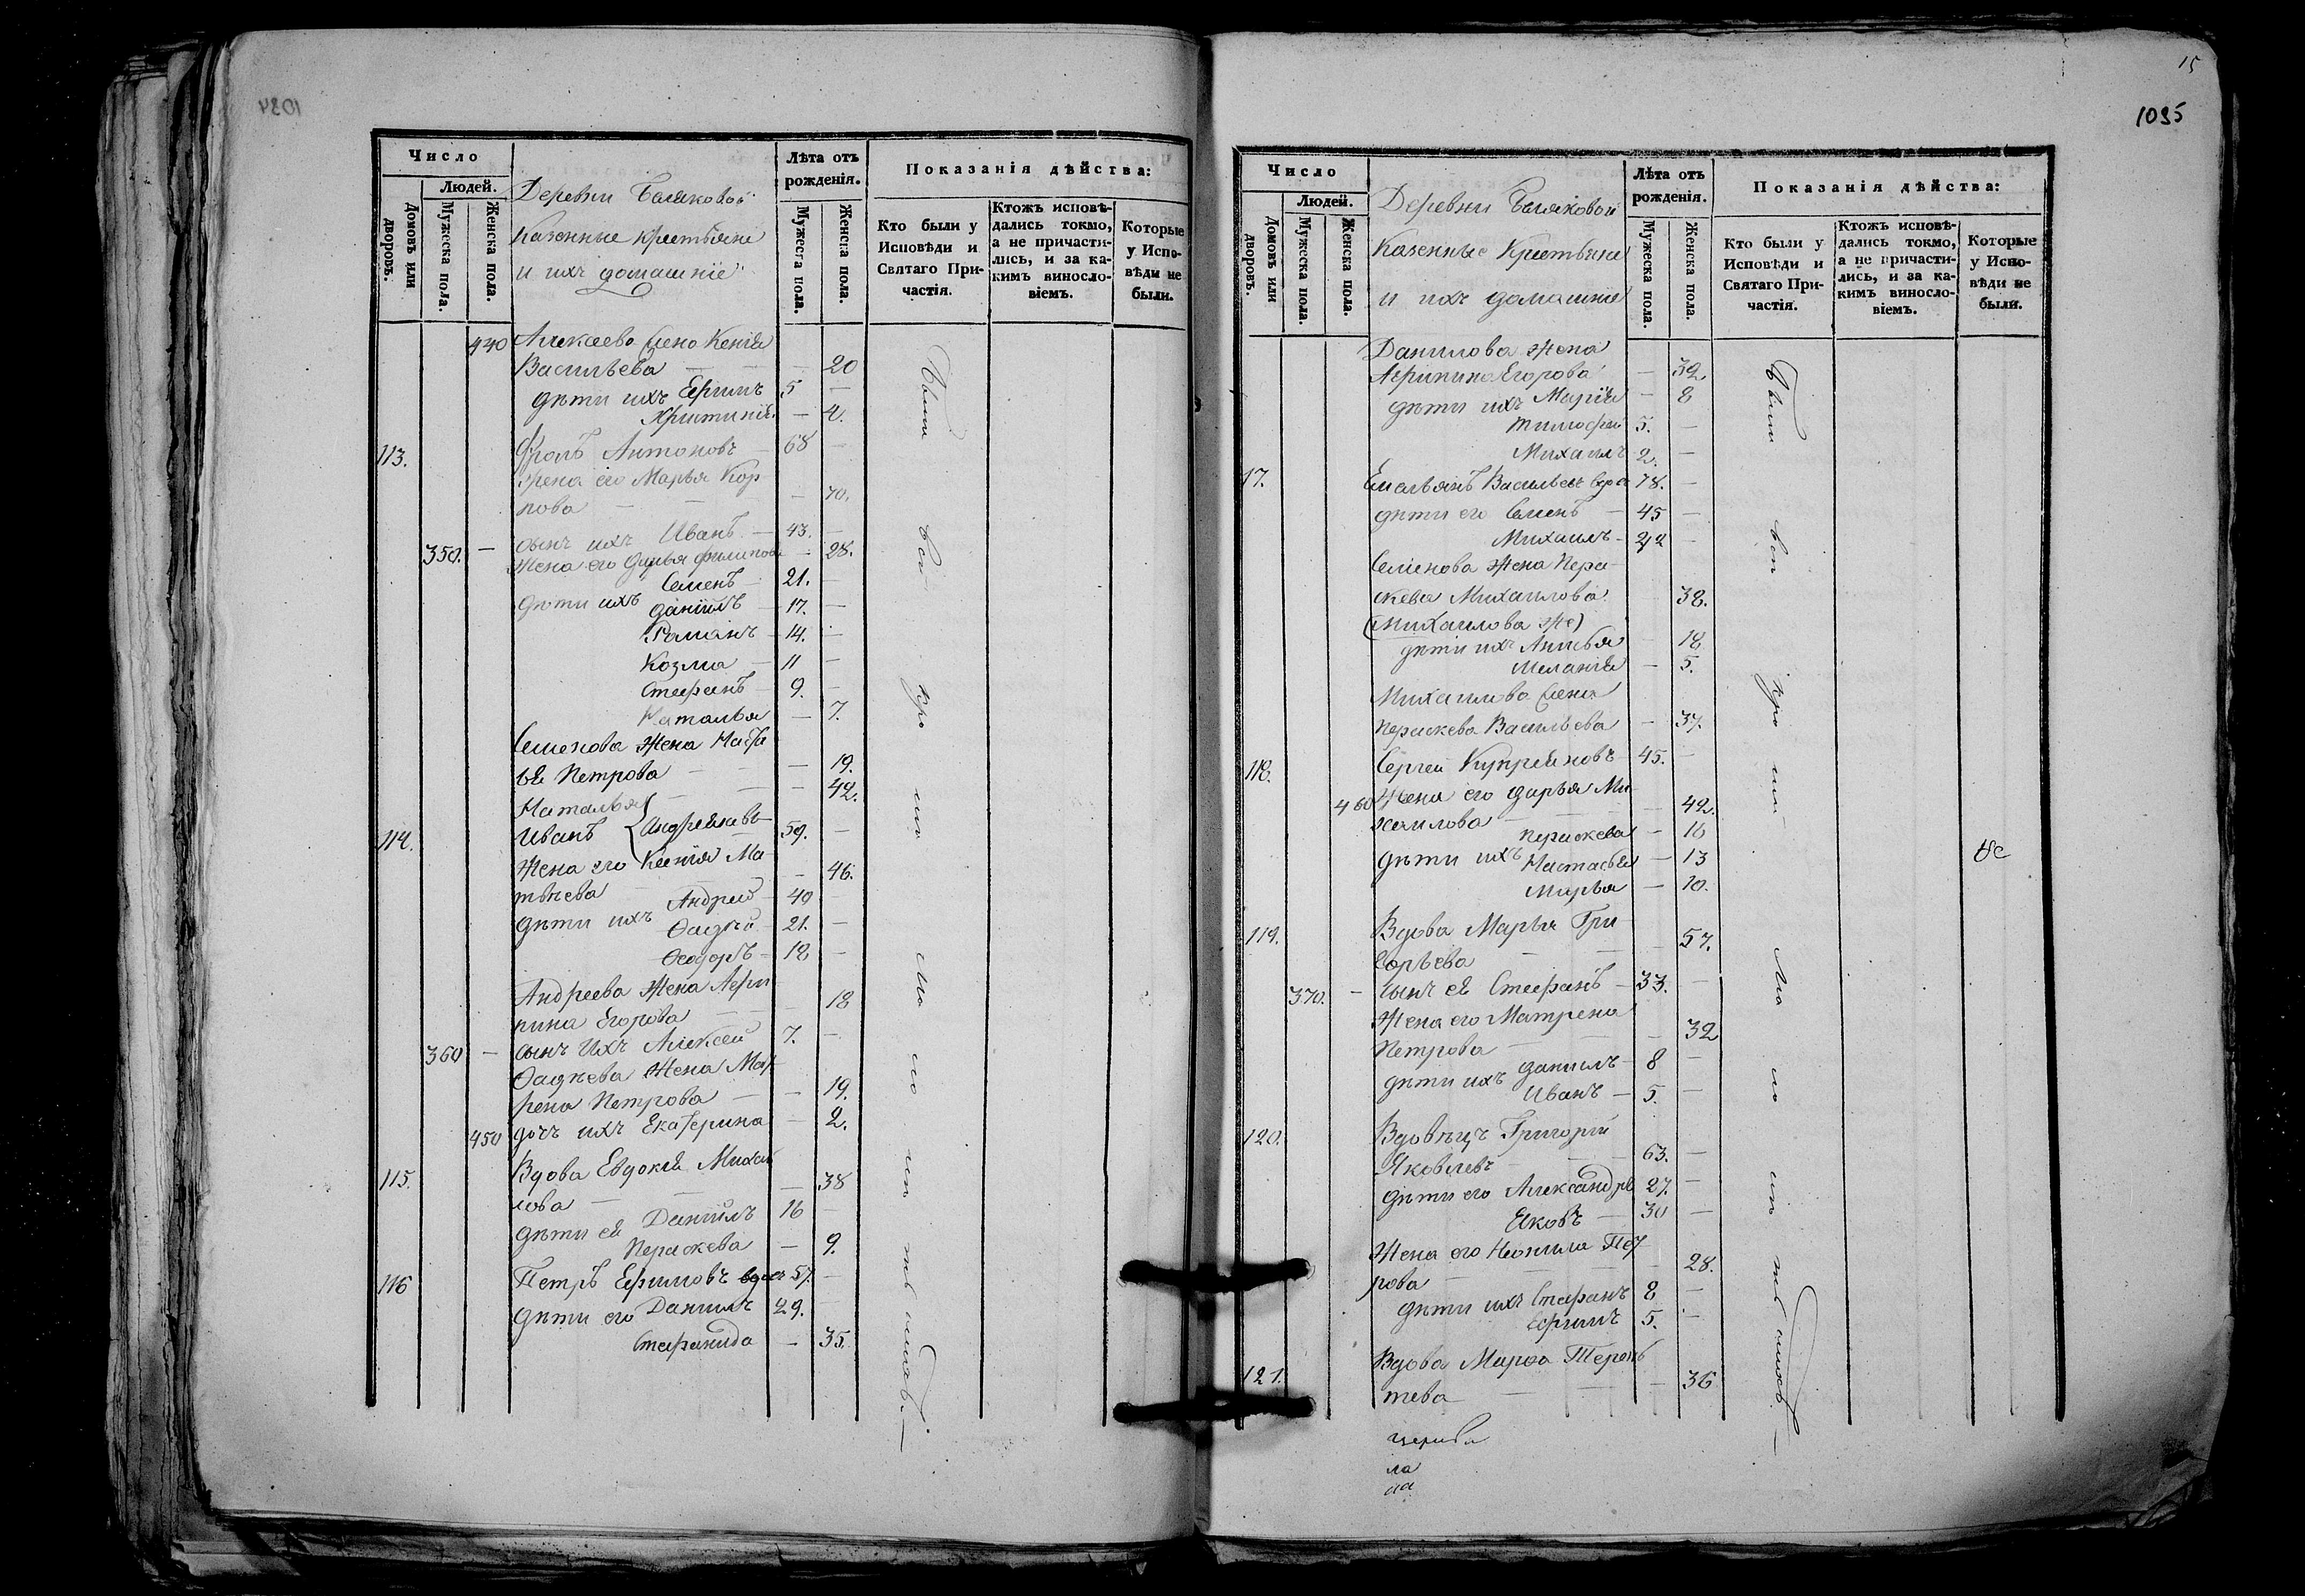 1034
Число
Людей.
Домовъ или дворовъ.
Мужеска пола.
Женска пола.
Деревни
Казенные крестьяне
и ихъ домашніе
Лѣта отъ рожденія.
Мужеска пола.
Женска пола.
Показанія дѣйства:
Кто были у Исповѣди и Святаго Причастія.
Ктожъ исповѣдались токмо, а не причастились, и за какимъ винословіемъ.
Которые у Исповѣди не были.
440 Алексева жена Ксенія
Васильева — 20
дѣти ихъ Ефимъ 5 —
Христинія — 4.
113. Фролъ Антоновъ 68 —
жена его Марья Кор
пова — 70.
сынъ ихъ Иванъ — 43. —
350. — Жена его Дарья Филипова — 28.
Семенъ — 21. —
дѣти ихъ Даніилъ — 17. —
Романъ — 14. —
Козма — 11 —
Стефанъ — 9. —
Наталья — 7.
Семенова жена Настa
ья Петрова — 19.
Наталья — 42.
114. Иванъ Андреевы 59. —
Жена его Ксенія Ма
твѣева — 46.
дѣти ихъ Андрей — 40 —
Фадѣй 21. —
Ѳеодоръ — 18 —
Андреева жена Агри
пина Егорова — 18
360 — сынъ ихъ Алексей 7. —
Фадѣева жена Мат
рена Петрова — 19.
450 дочь ихъ Екатерина — 2.
115. Вдова Евдокія Михай
лова — 38
дѣти ея Даніилъ 16 —
Пераскева — 9.
116 Петръ Ефимовъ вдовъ 57. —
дѣти его Данилъ 29. —
Стефанида — 35.
Были всѣ
15
1035
Число
Людей.
Домовъ или дворовъ.
Мужеска пола.
Женска пола.
Деревни
Казенные Крестьяне
и ихъ домашніе
Лѣта отъ рожденія.
Мужеска пола.
Женска пола.
Показанія дѣйства:
Кто были у Исповѣди и Святаго Причастія.
Ктожъ исповѣдались токмо, а не причастились, и за какимъ винословіемъ.
Которые у Исповѣди не были.
Данилова жена
Агрипина Егорова — 32
дѣти ихъ Марія — 8
Тимофей 5. —
Михаилъ 2. —
17. Емельянъ Васильевъ вдовъ 78. —
дѣти его Семенъ — 45 —
Михаилъ — 42 —
Семенова жена Пера
скева Михаилова 38.
(Михаилова же)
дѣти ихъ — 18
Меланія — 5.
Михаилова жена
Пераскева Васильева — 37.
118. Сергей Купреяновъ 45. —
460 Жена его Дарья Ми
хаилова — 42.
Пераскева — 16
дѣти ихъ Настасья — 13
Марья — 10.
119. Вдова Марья Гри
горьева — 57.
370. — Сынъ ея Стефанъ — 33. —
Жена его Матрена
Петрова — 32
дѣти ихъ Данилъ — 8 —
Иванъ — 5. —
120. Вдовѣцъ Григорій
Яковлевъ 63. —
дѣти его Александръ 27. —
Яковъ — 30 —
Жена его Неонила Пет
рова — 28.
дѣти ихъ Стефанъ 8 —
Ефимъ 5. —
121. Вдова Марѳа Терень
тева — 36
Были всѣ